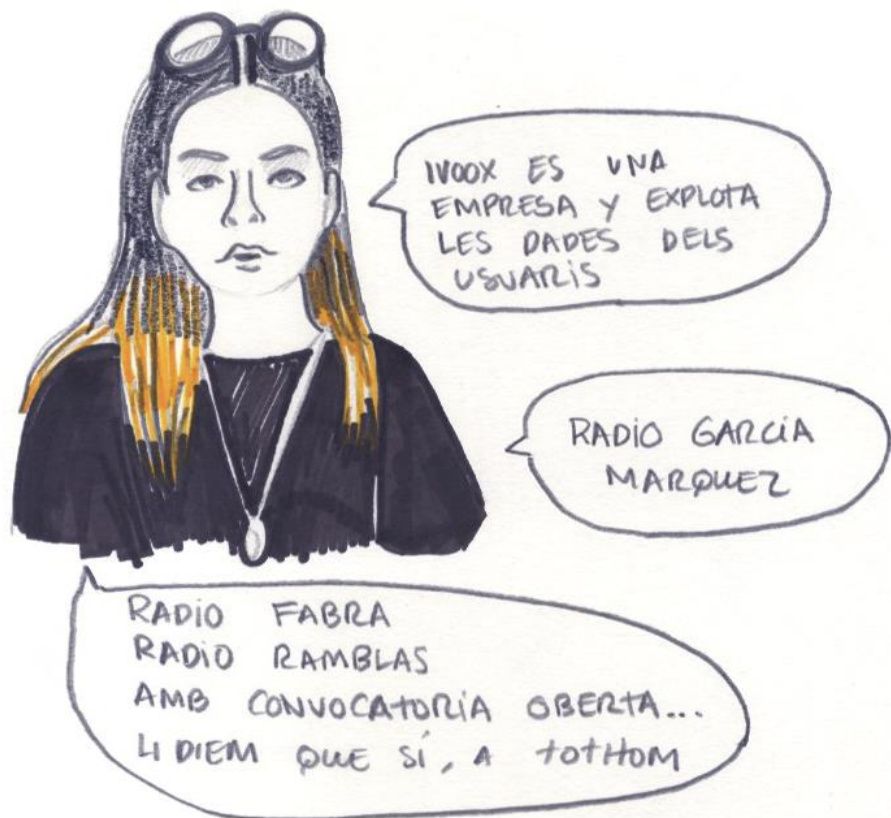 IVOOX ES UNA
EMPRESA Y EXPLOTA
LES DADES DELS
USUARIS
RADIO GARCIA
MARQUEZ
RADIO FABRA
RADIO RAMBLAS
AMB CONVOCATORIA OBERTA...
LI DIEM QUE SÍ, A TOTHOM